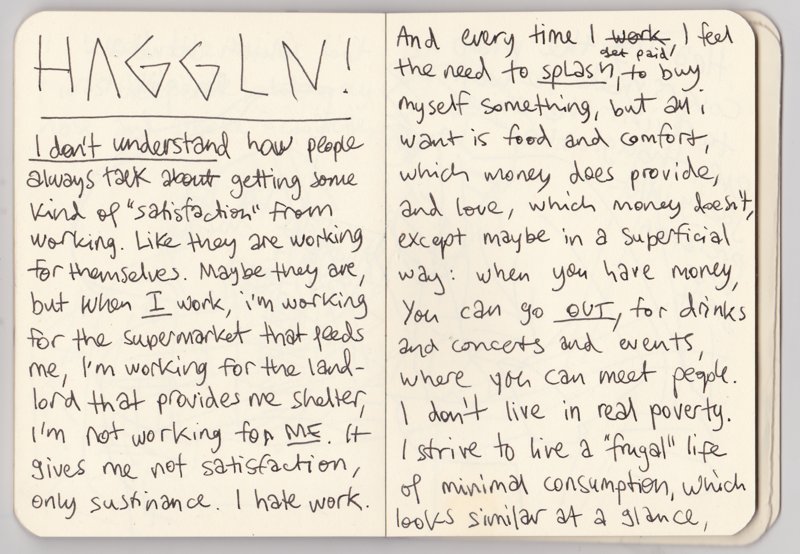 HAGGLN!
I don't understand how people
always talk about getting some
kind of "satisfaction" from
working. Like they are working
for themselves. Maybe they are,
but when I work, i'm working
for the supermarket that feeds
me, I'm working for the land-
lord that provides me shelter,
I'm not working for ME. It
gives me not satisfaction,
only sustinance. I hate work.
And every time I work get paid I feel
the need to splash, to buy
myself something, but all i
want is food and comfort,
which money does provide,
and love, which money doesn't,
except maybe in a superficial
way: when you have money,
you can go OUT, for drinks
and concerts and events,
where you can meet people.
I don't live in real poverty.
I strive to live a "frugal" life
of minimal consumption, which
looks similar at a glance,